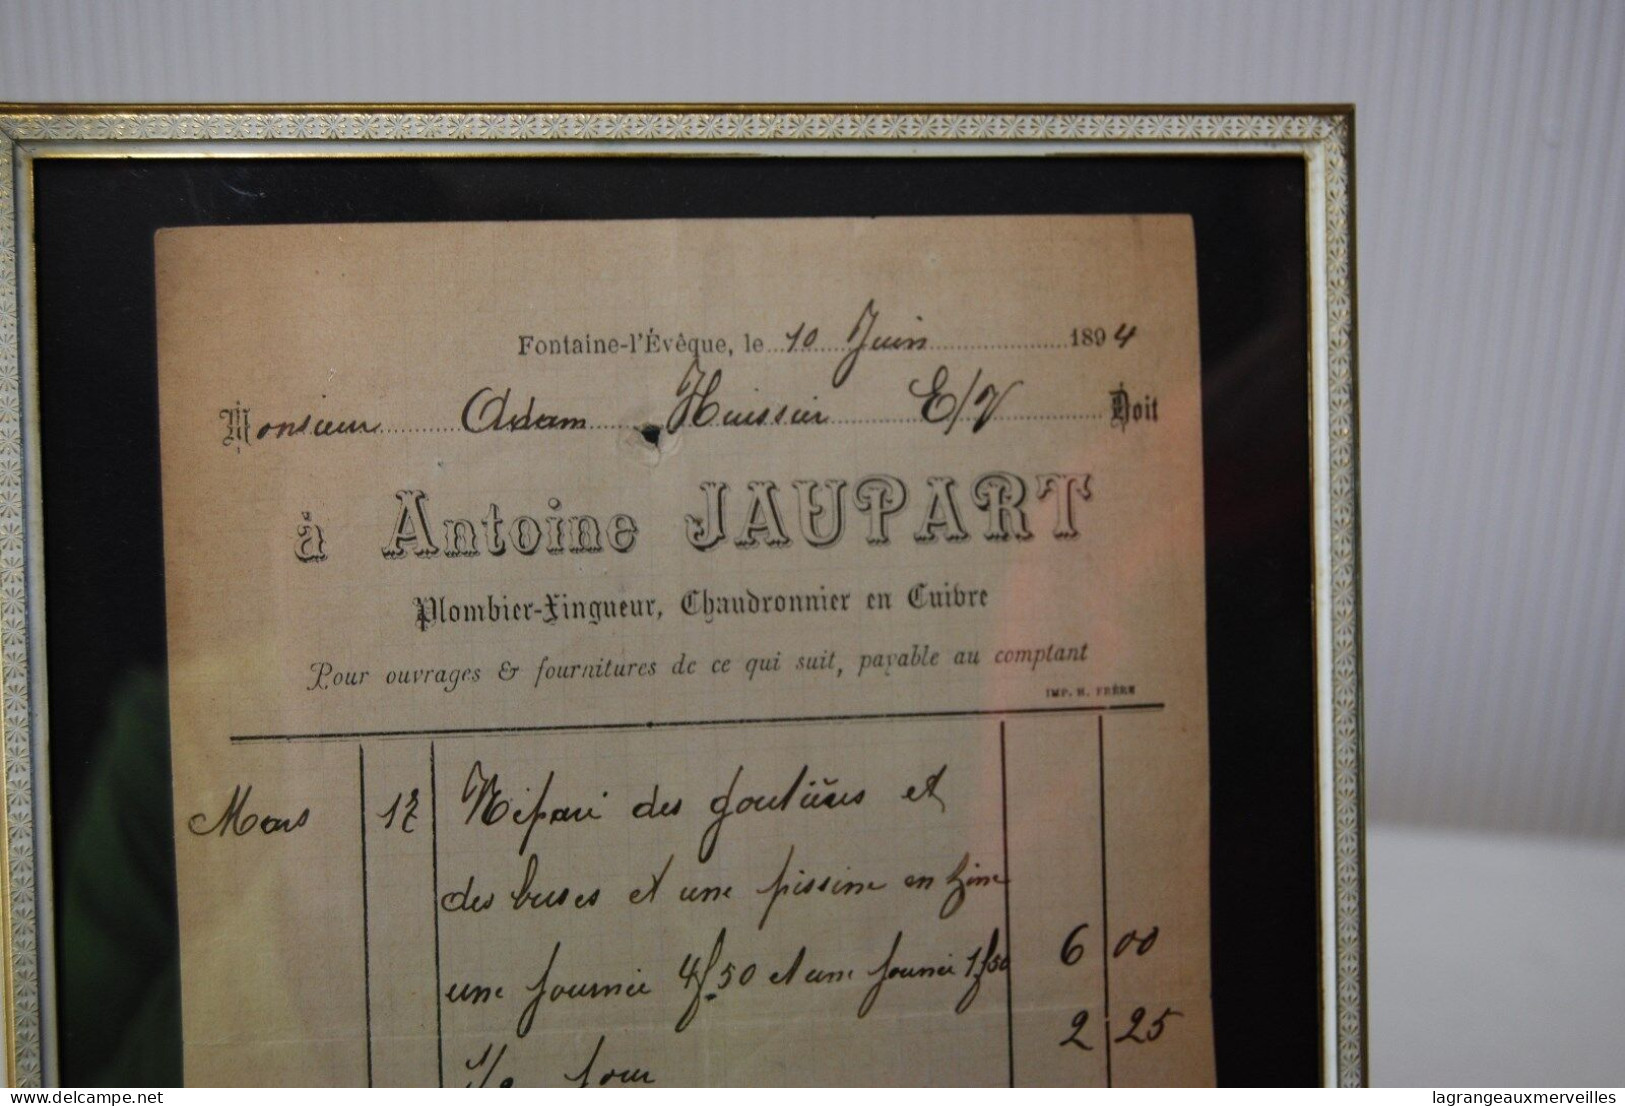 Fontaine-l'Évêque, le 10 Juin 1894
Monsieur Adam Huissier E/V Doit
à Antoine JAUPART
Plombier-Zingueur, Chaudronnier en Cuivre
Pour ouvrages & fournitures de ce qui suit, payable au comptant
IMP. H. FRÈRE
Mars 12 Réparé des goutières et
des buses et une pissine en zinc
une journée 4f.50 et une journée 1f50 6 00
1/2 jour 2 25
delcampe.net
lagrangeauxmerveilles